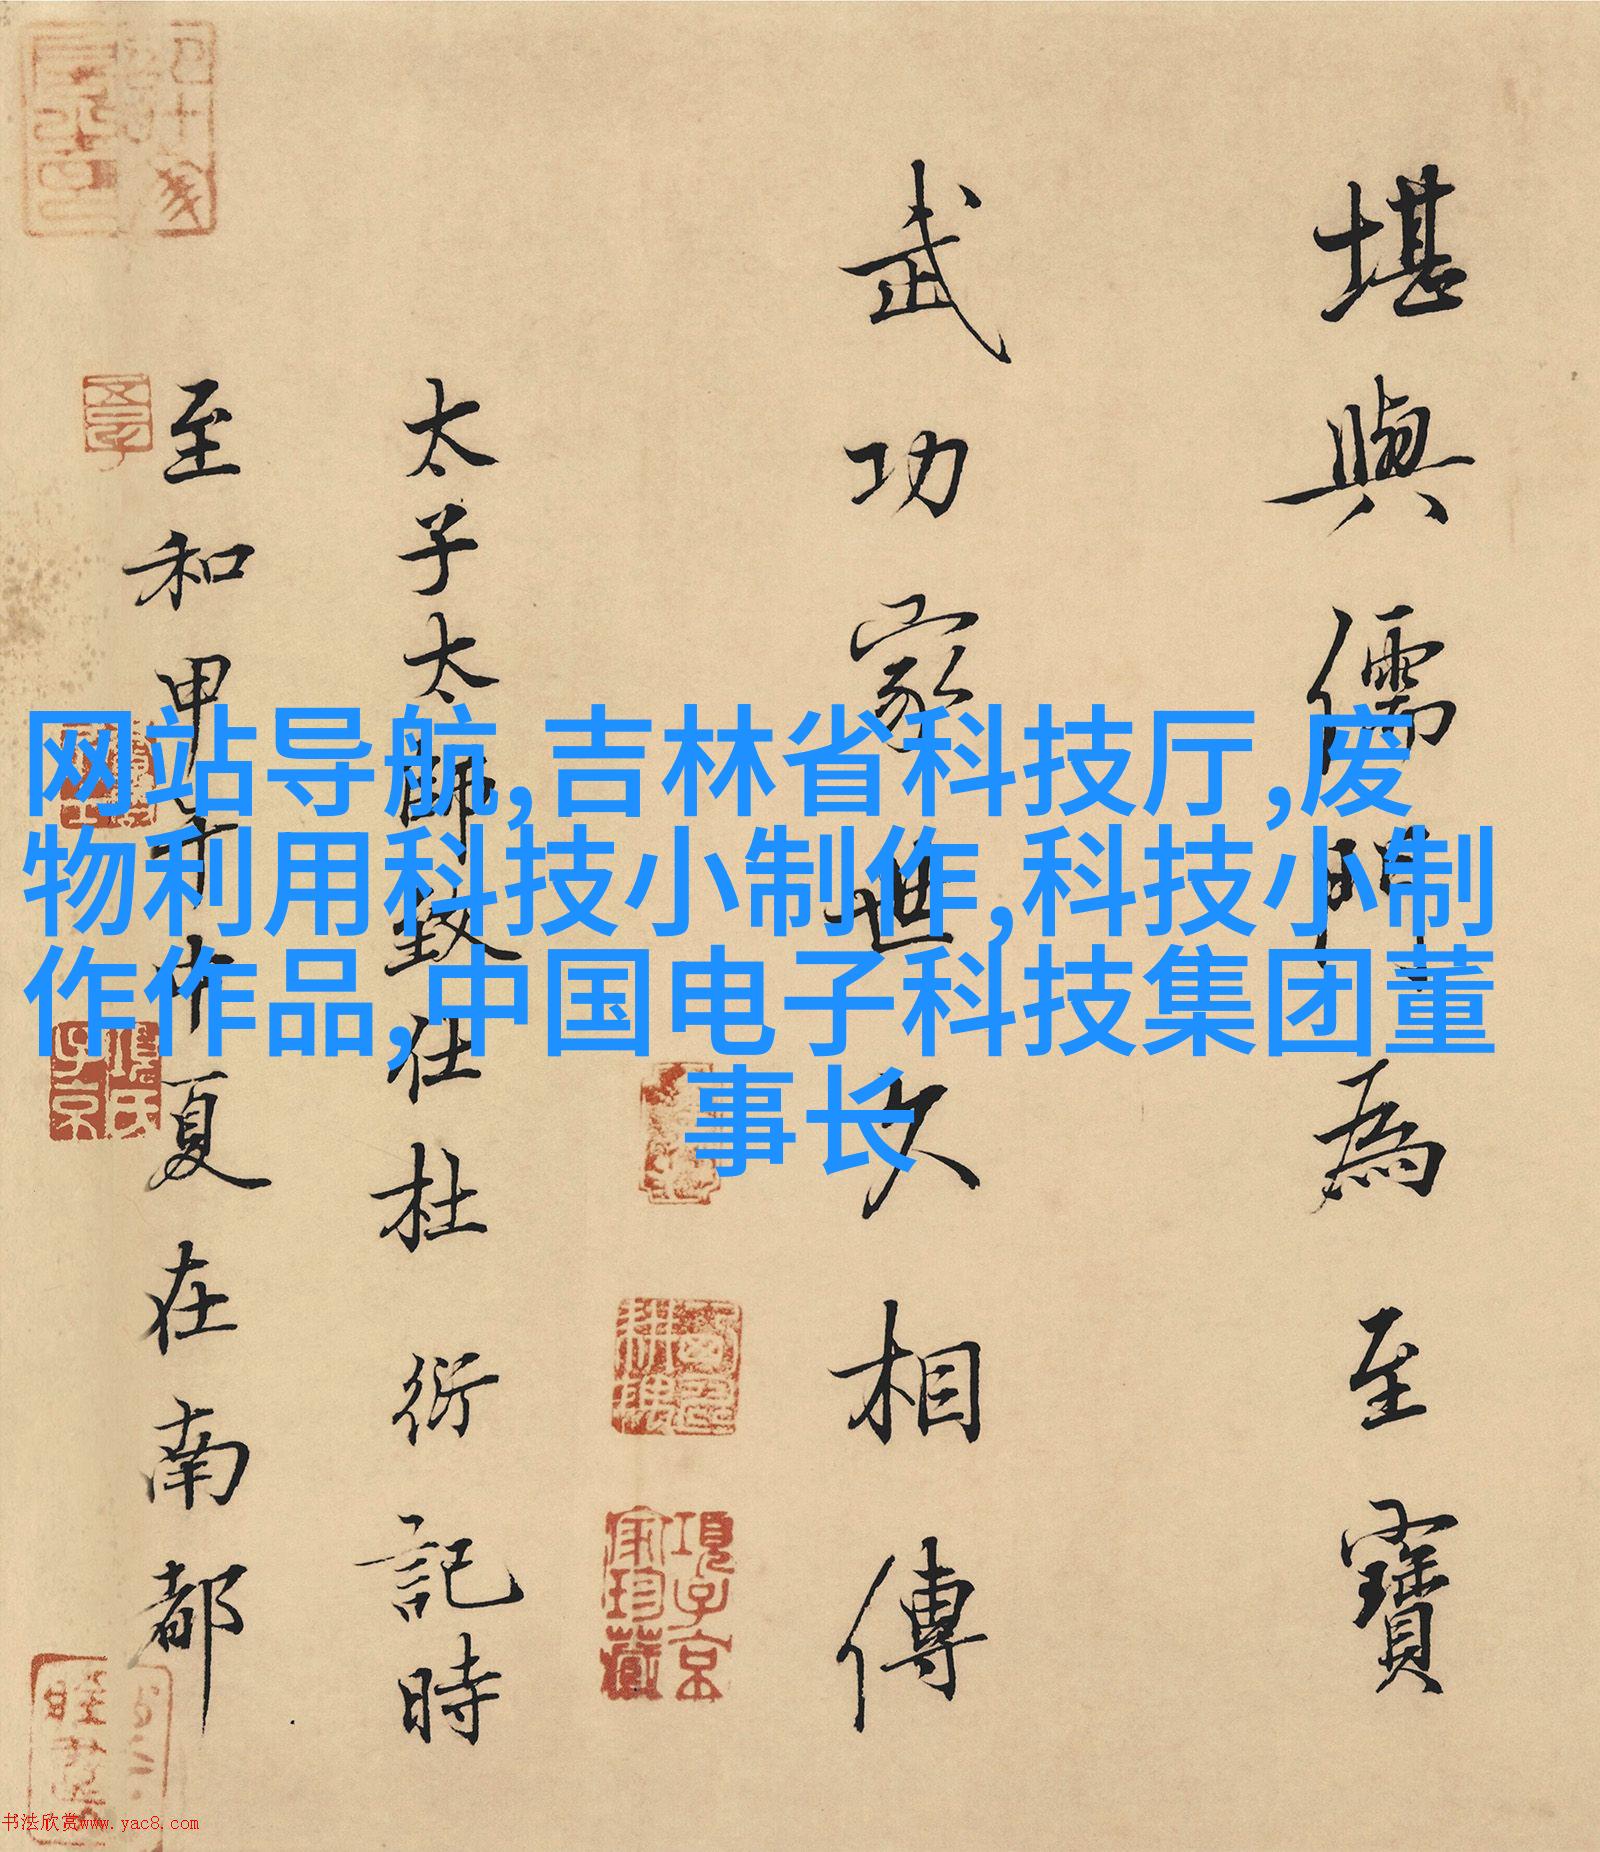 堪輿儒門為至寶
武功家世久相傳
太子太師致仕杜衍記時
至和甲午仲夏在南都
网站导航,吉林省科技厅,废
物利用科技小制作,科技小制
作作品,中国电子科技集团董
事长
項子京家珍藏
項氏子京
书法欣赏www.yac8.com